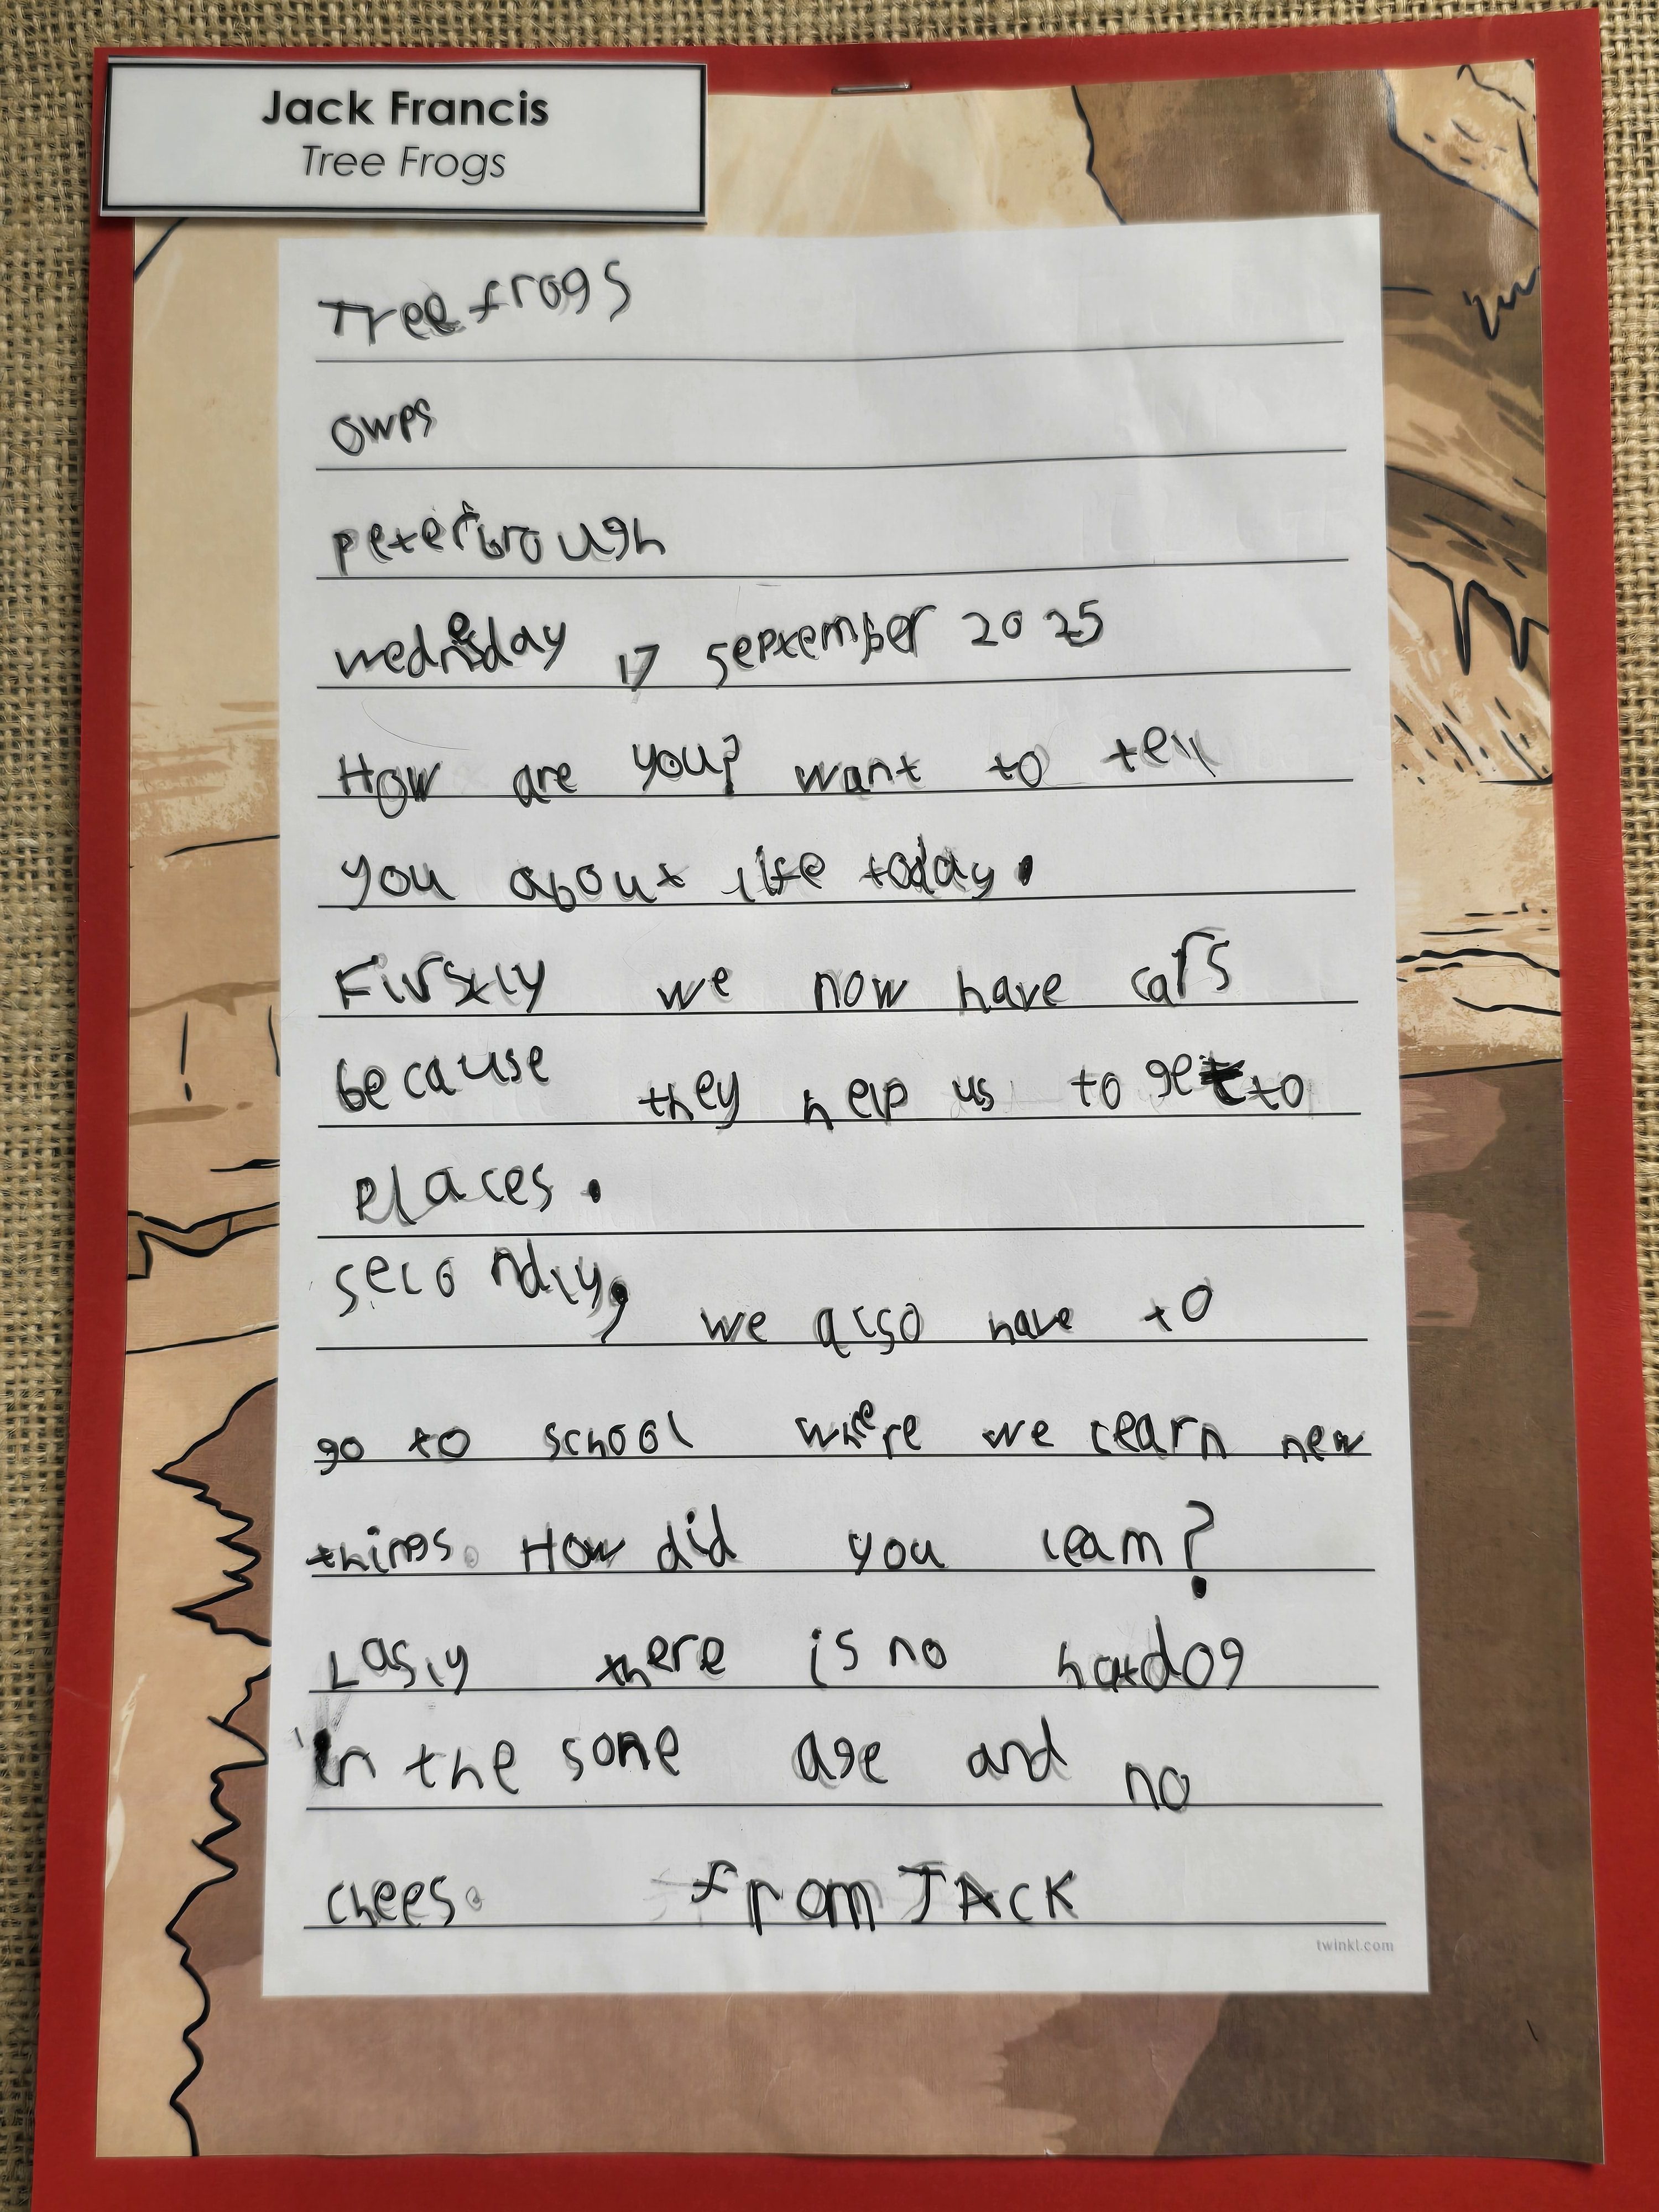 Jack Francis
Tree Frogs
Tree frogs
owps
peterbrough
wednesday 17 September 2025
How are you? want to tell
you about life today.
Firstly we now have cars
because they help us to get to
places.
secondly, we also have to
go to school where we learn new
things. How did you learn?
Lasly there is no hotdog
in the sone age and no
chees. from JACK
twinkl.com